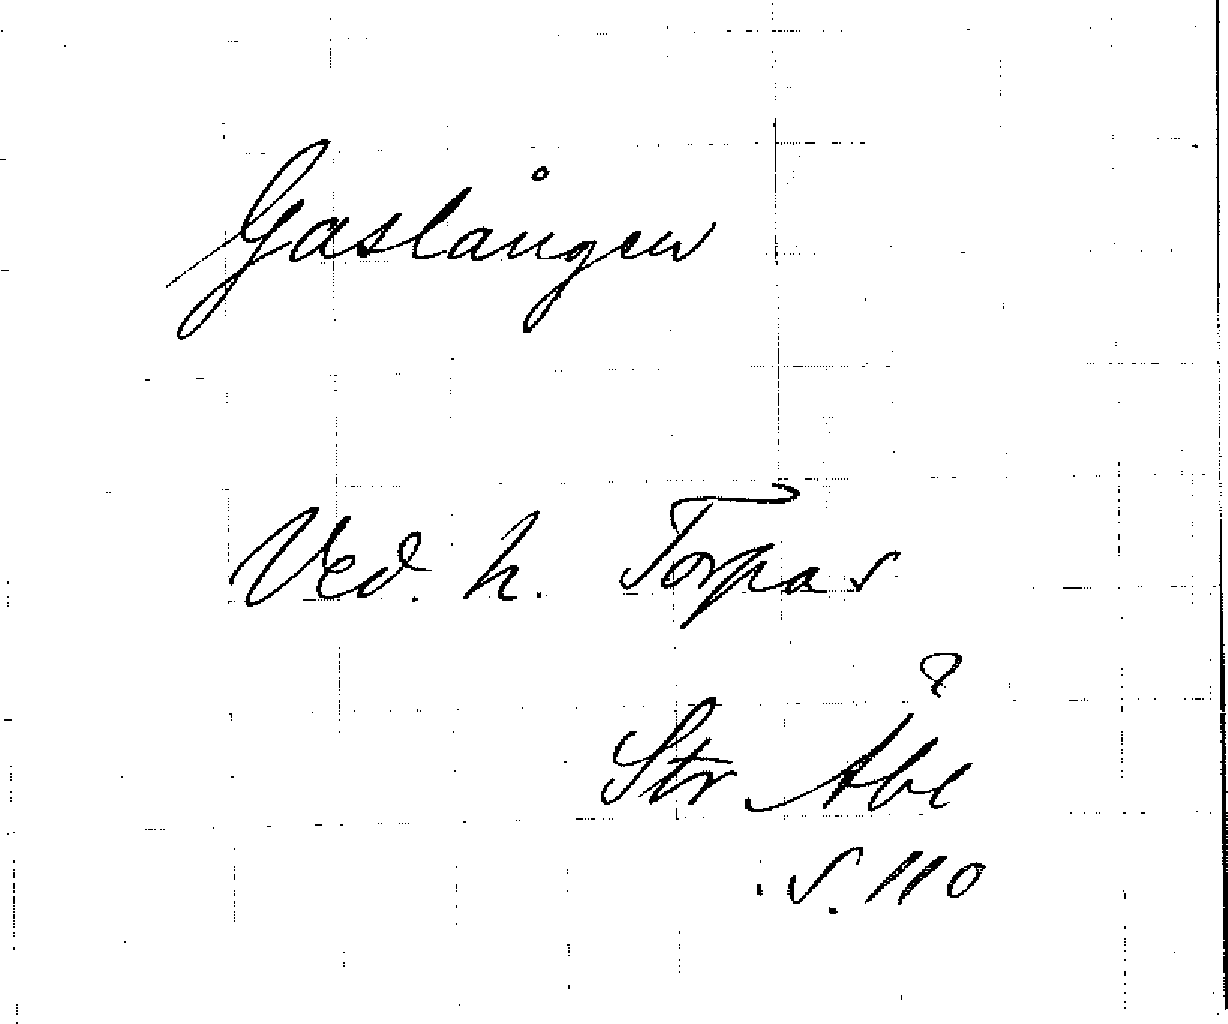 Gaslången
Ved. h. Torpa s
Str Åbe
s. 110